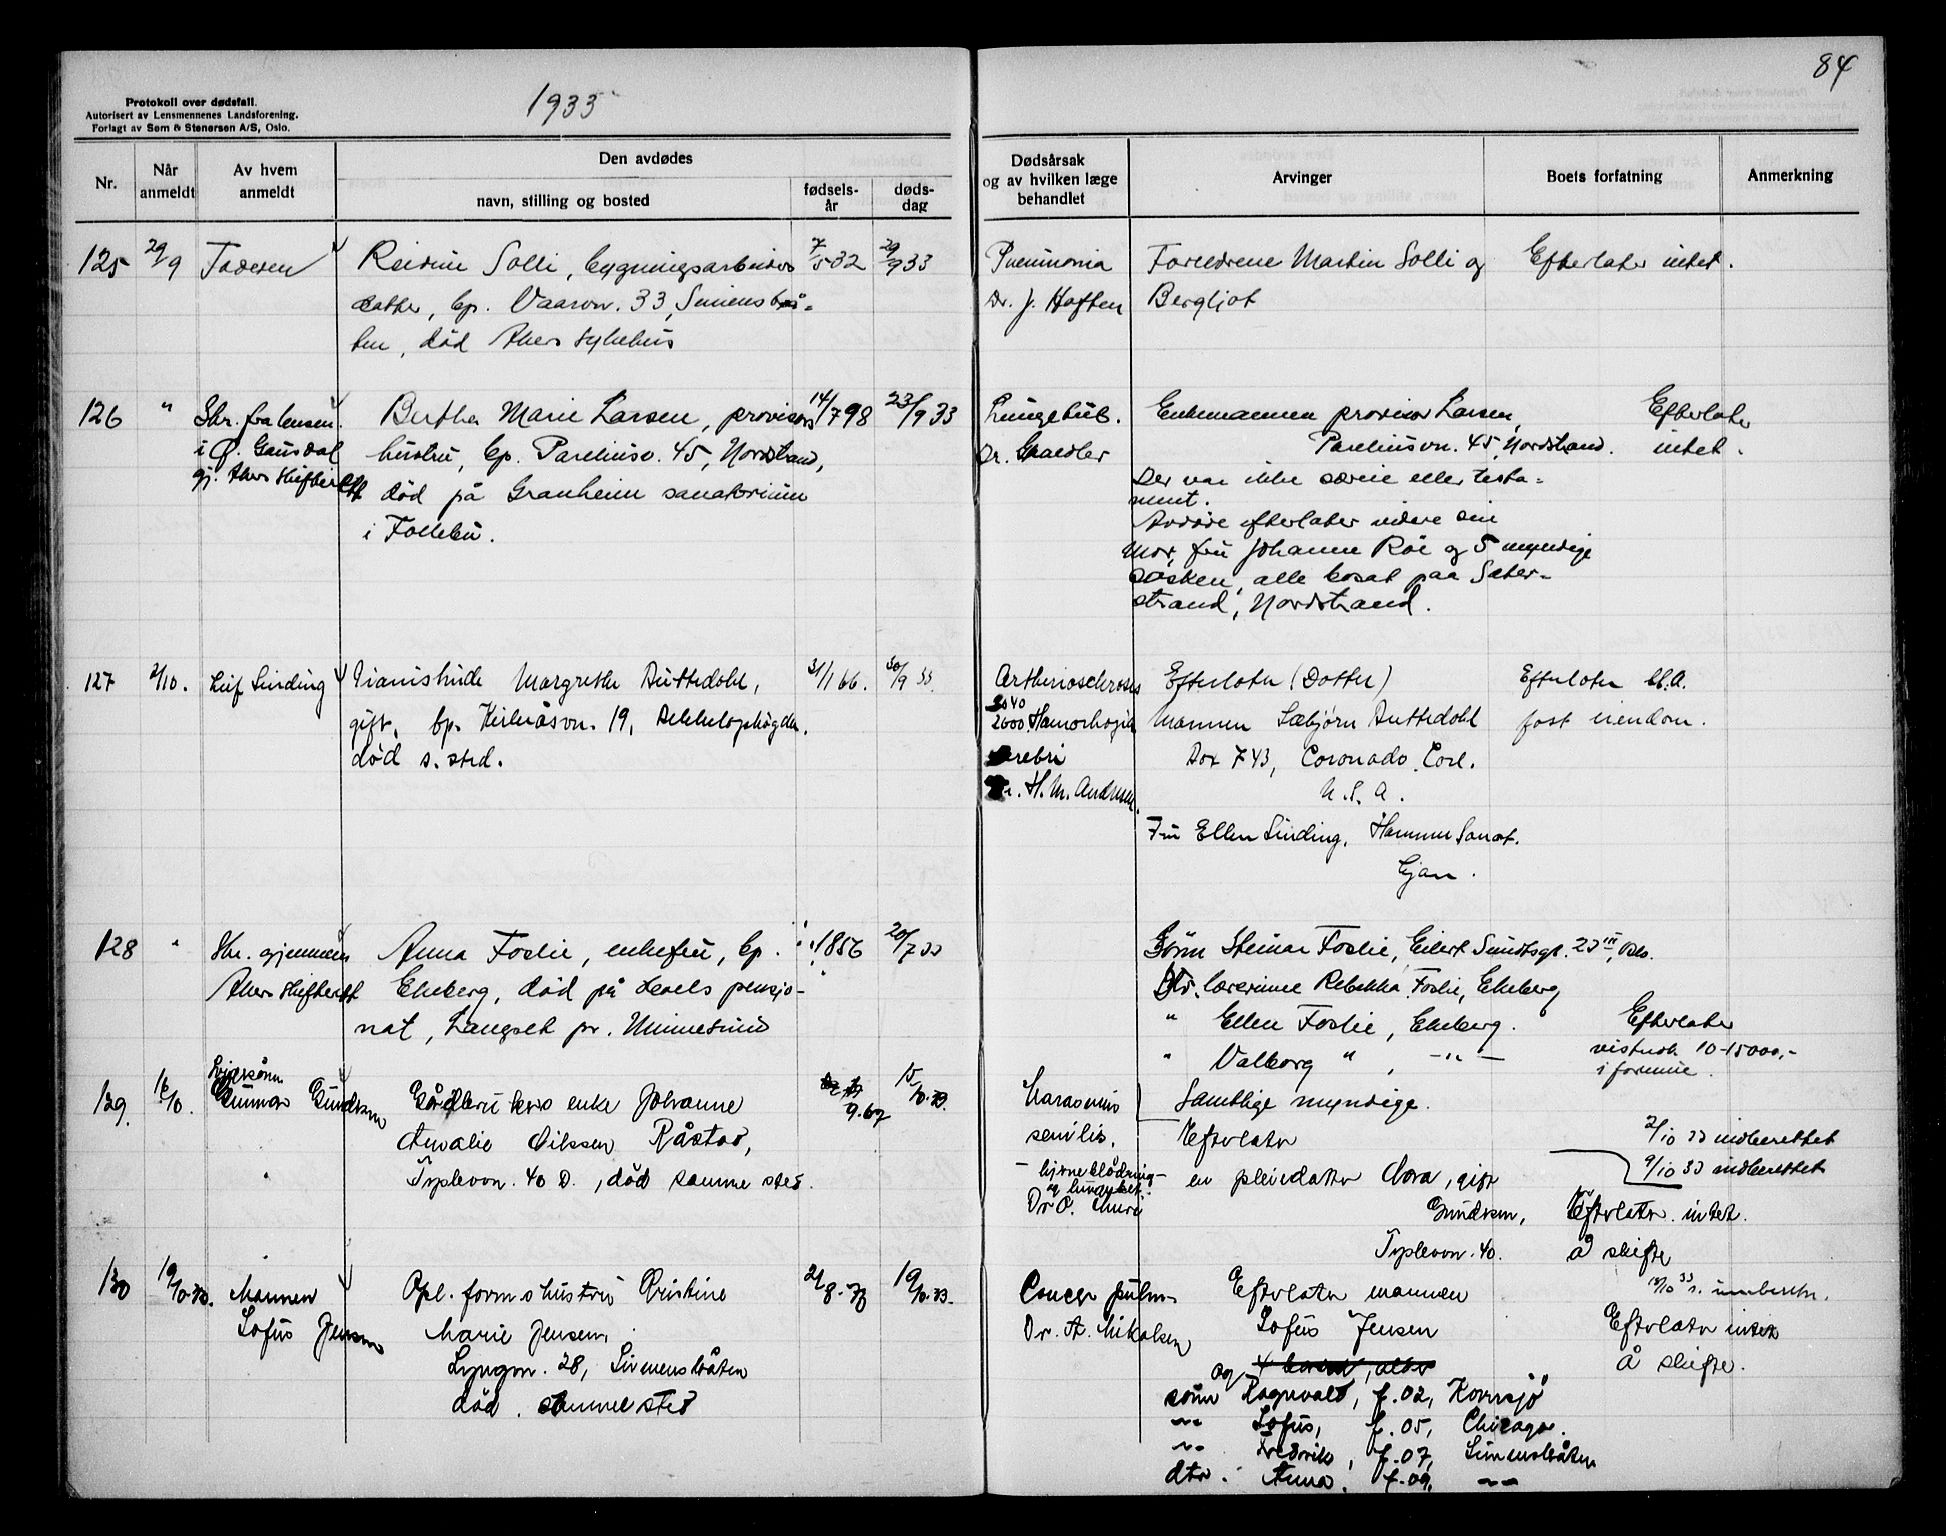 84
Protokoll over dødsfall.
Autorisert av Lensmennenes Landsforening.
Forlagt av Sem & Stenersen A/S, Oslo.
1933
Nr.
Når anmeldt
Av hvem anmeldt
Den avdødes
navn, stilling og bosted
fødsels-år
døds-dag
Dødsårsak og av hvilken læge behandlet
Arvinger
Boets forfatning
Anmerkning
125 29/9 Faderen Reidun Solli, bygningsarbeiders 7/5 32 29/9 33 Pneumonia Foreldrene Martin Solli og Efterlater intet.
datter, bp. Vaarvn. 33, Simensbrå- Dr. J. Haften Bergljot
ten, død Akers sykehus
126 " Skr. fra lensm. Berthe Marie Larsen, provisors 14/7 98 23/9 33 Lungetub. Enkemannen provisor Larsen, Efterlater
i Ø. Gausdal hustru, bp. Pareliusv. 45, Nordstrand, Dr. Pareliusvn. 45, Nordstrand. intet.
gj. Akers skifterett død på Granheim sanatorium Der var ikke særeie eller testa-
i Follebu. ment.
Avdøde efterlater videre sin
mor, fru Johanne Röe og 5 myndige
søsken, alle bosat paa Sæter-
strand, Nordstrand.
127 2/10. Leif Sinding Pianistinde Margrethe 31/1 66. 30/9 33. Artheriosclroses Efterlater (Datter) Efterlater bl.a.
gift, bp. Kirkeåsvn. 19, Bekkelagshøgda. Hæmorhagia Mannen Sæbjørn fast eiendom.
død s. sted. Box 743, Coronado, Cal.
Dr. H. M. Andersen. U.S.A.
Fru Ellen Sinding, Sanat.
Ljan.
128 " Skr. gjennem Anna Foslie, enkefru, bp. 1856 20/7 33 Sønn Steinar Foslie, Eilert Sundtsgt. 23 III, Oslo.
Akers skifterett Ekeberg, død på pensjo- Dtr. lærerinne Rebekka Foslie, Ekeberg
nat, Langset pr. Minnesund " Ellen Foslie, Ekeberg. Efterlater
" Valborg " , -"- vistnok 10-15000,-
i formue.
129. 16/10. Svigersønn
Gunnar Gundersen Gårdbrukers enke Johanne 9.67 15/10.33. Marasmus Samtlige myndige.
Amalie Nilssen Råstad, senilis, Efterlater 2/10 33 indberettet
Trplevvn. 40 D., død samme sted. - hjerneblødning - en pleiedatter Nora, gift 9/10 33 indberettet
Dr. O. Gundersen, Efterlater intet.
40. å skifte
130 19/10.33. Mannen Opl. form.s hustru Kristine 21/8.77 19/10.33. Cancer pulm. Efterlater mannen
Sofus Jensen Marie Jensen, Dr. A. Nikolsen Sofus Jensen Efterlater intet
Lyngvn. 28, Simensbråten og 4 barn, alder å skifte.
død samme sted sønn Ragnvald, f. 02, Kornsjø
-"- Sofus, f. 05, Chicago.
-"- Fredrik, f. 07, Simensbråten
dtr. Anna, f. 09, -"-